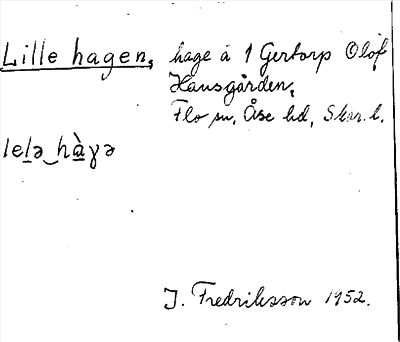 Lille hagen, hage å 1 Gertorp Olof
Hansgården,
Flo sn, Åse hd, Skar. l.
lelə hàγə
I. Fredriksson 1952.